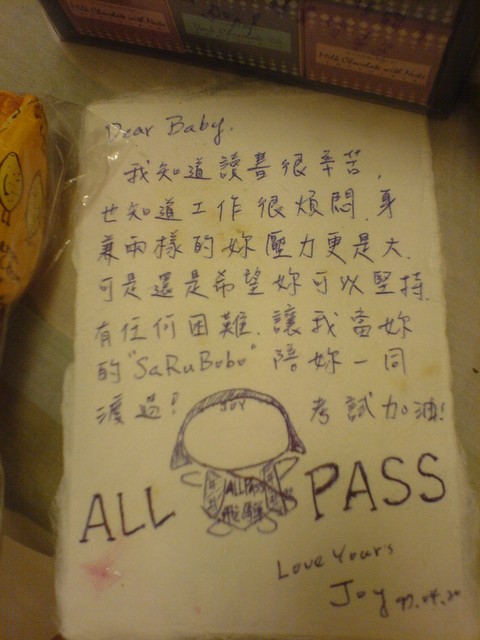 Milk Chocolate with Nuts
Milk Chocolate with Nuts
Dear Baby,
我知道讀書很辛苦,
也知道工作很煩悶,身
兼兩樣的妳壓力更是大.
可是還是希望妳可以堅持.
有任何困難.讓我當妳
的"SaRuBobo"陪妳一同
渡過! 考試加油!
JOY
ALL PASS
ALL PASS
Love Yours
Joy 97.04.20